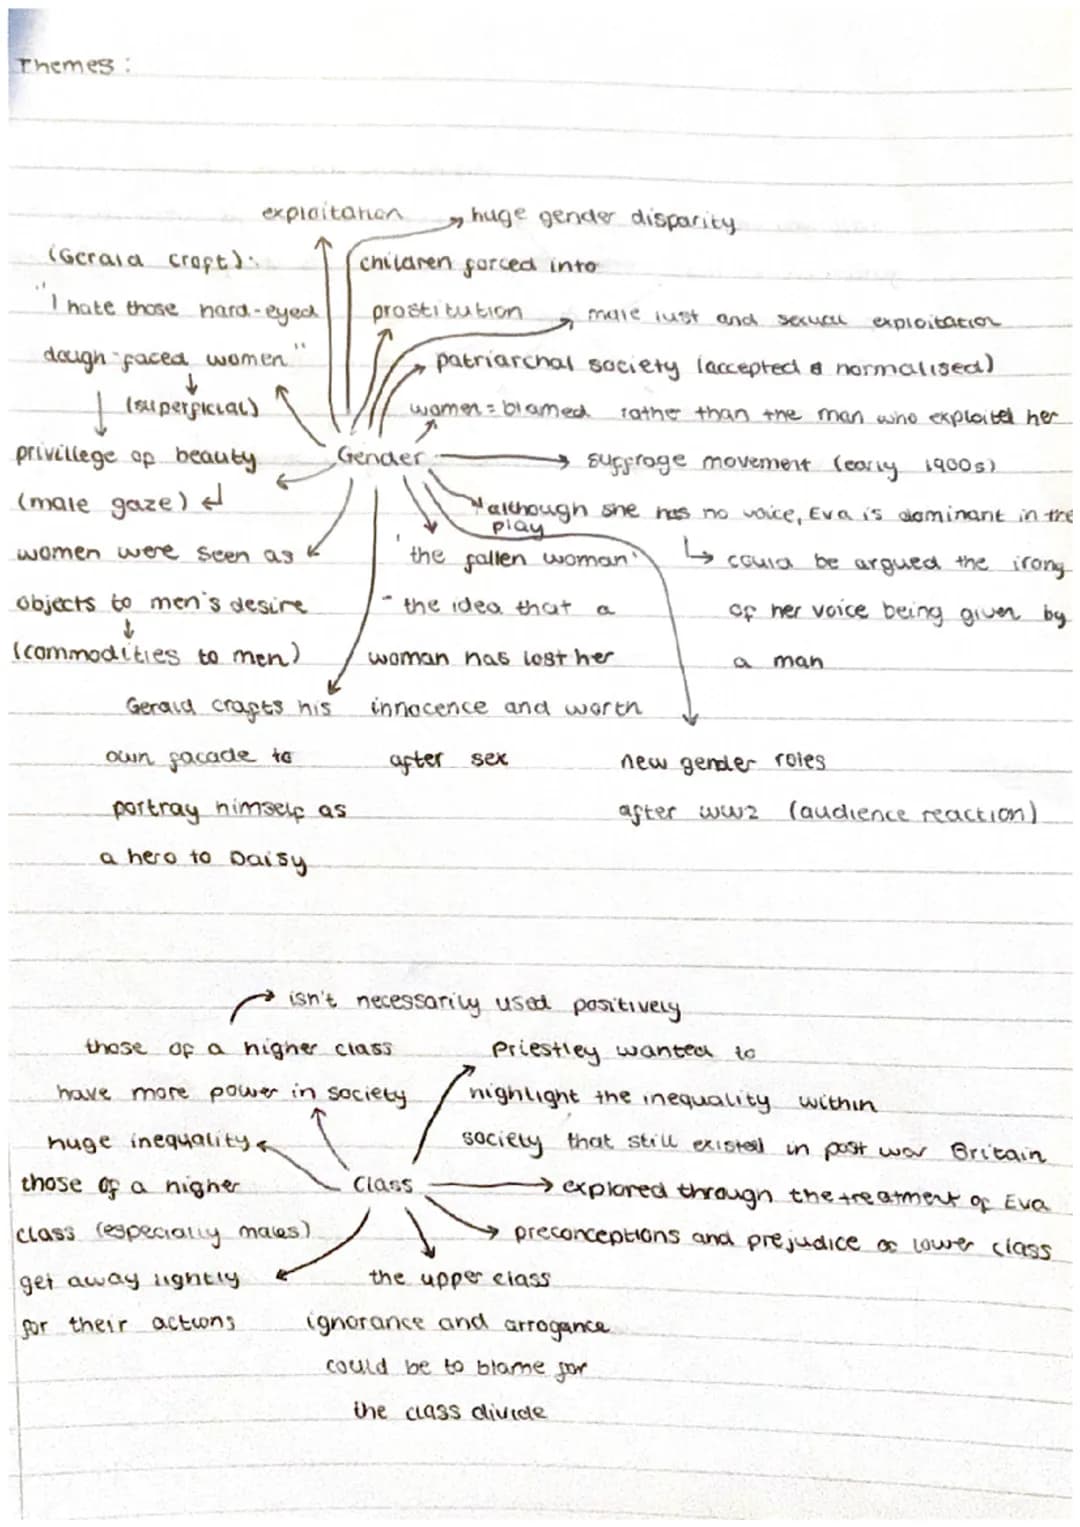 Themes :
exploitation
huge gender disparity
(Gerald Croft):
"I hate those hard-eyed
dough-faced women"
(superficial)
privillege of beauty
(male gaze)
women were seen as
objects to men's desire
(commodities to men)
children forced into
prostitution
male lust and sexual exploitation
patriarchal society (accepted & normalised)
women = blamed rather than the man who exploited her
Gender
suffrage movement (early 1900s)
although she has no voice, Eva is dominant in the
play
could be argued the irony
of her voice being given by
a man
'the fallen woman'
- the idea that a
woman has lost her
innocence and worth
after sex
Gerald crafts his
own facade to
portray himself as
a hero to Daisy
new gender roles
after WW2 (audience reaction)
isn't necessarily used positively
those of a higher class
have more power in society
Priestley wanted to
highlight the inequality within
society that still existed in post war Britain
huge inequality
Class
explored through the treatment of Eva
preconceptions and prejudice of lower class
those of a higher
class (especially males)
get away lightly
for their actions
the upper class
ignorance and arrogance
could be to blame for
the class divide